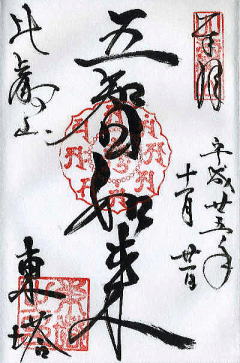 奉拝
平成廿五年
十一月廿一日
五智如来
比叡山
東塔